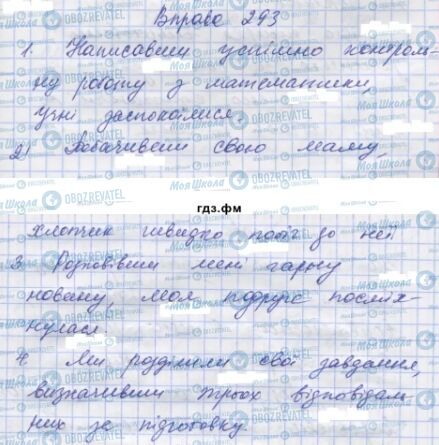 Вправа 293
1. Написавши успішно контроль-
ну роботу з математики,
учні заспокоїлися.
2) Побачивши свою маму,
гдз.фм
хлопчик швидко побіг до неї
3 Розповівши мені гарну
новину, моя подруга посміх-
нулася.
4 Ми розділили свої завдання,
визначивши трьох відповідаль-
них за підготовку.
Моя Школа
OBOZREVATEL